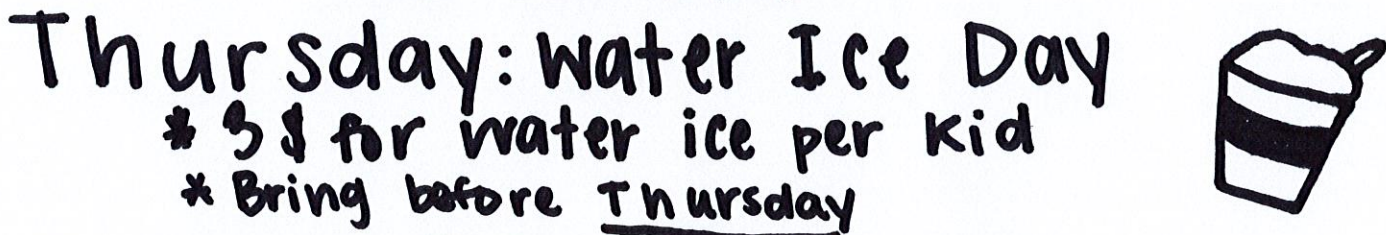 Thursday: Water Ice Day
* 3 $ for water ice per kid
* Bring before Thursday